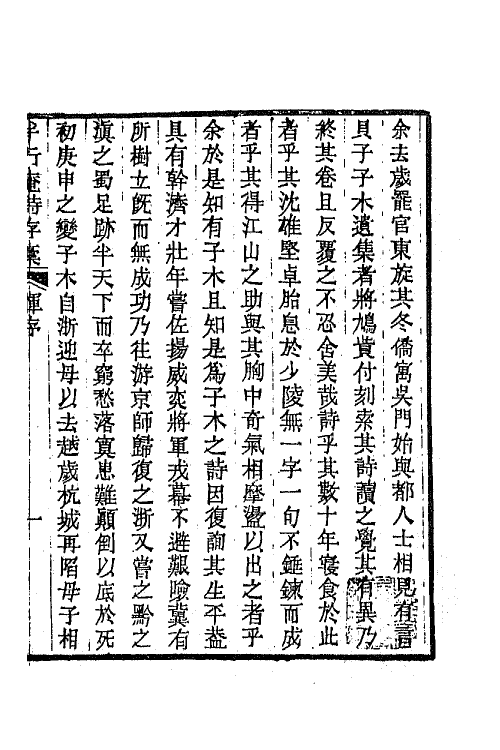 余去歲罷官東旋其冬僑寓吳門始與都人士相見有言
貝子子木遺集者將鳩貲付刻索其詩讀之覺其有異乃
終其卷且反覆之不忍舍美哉詩乎其數十年寢食於此
者乎其沈雄堅卓胎息於少陵無一字一句不錘鍊而成
者乎其得江山之助與其胸中奇氣相摩盪以出之者乎
余於是知有子木且知是為子木之詩因復詢其生平蓋
具有幹濟才壯年嘗佐揚威奕將軍戎幕不避艱險冀有
所樹立旣而無成功乃往游京師歸復之浙又嘗之黔之
滇之蜀足跡半天下而卒窮愁落寞患難顛倒以底於死
初庚申之變子木自浙迎母以去越歲杭城再陷母子相
半行庵詩存稾
惲序
一